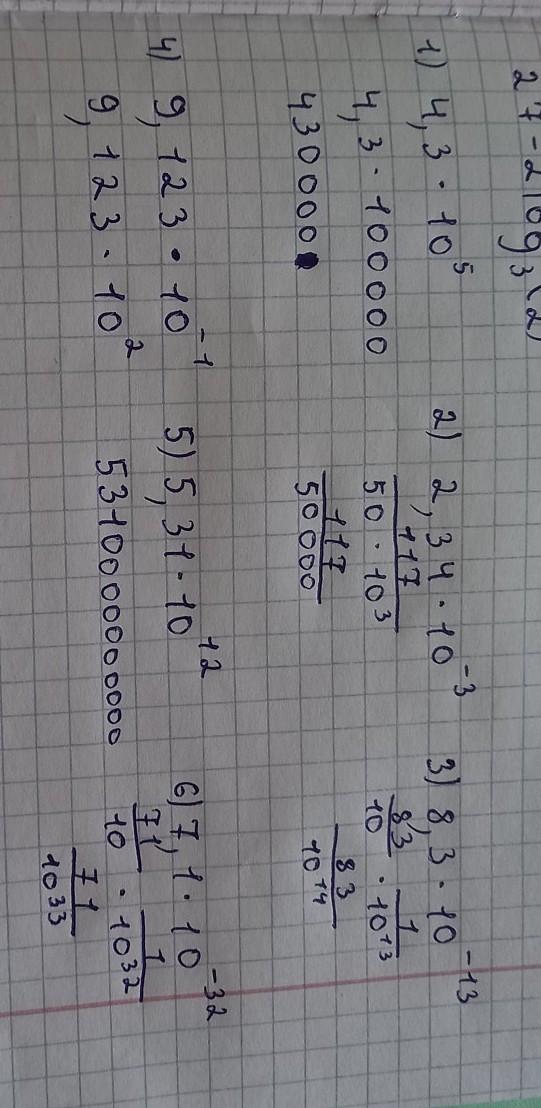 27-2log₃(2)
1) 4,3 · 10⁵
4,3 · 100000
430000
2) 2,34 · 10⁻³
117
50 · 10³
117
50000
3) 8,3 · 10⁻¹³
83/10 · 1/10¹³
83
10¹⁴
4) 9,123 · 10⁻¹
9,123 · 10²
5) 5,31 · 10¹²
5310000000000
6) 7,1 · 10⁻³²
71/10 · 1/10³²
71
10³³